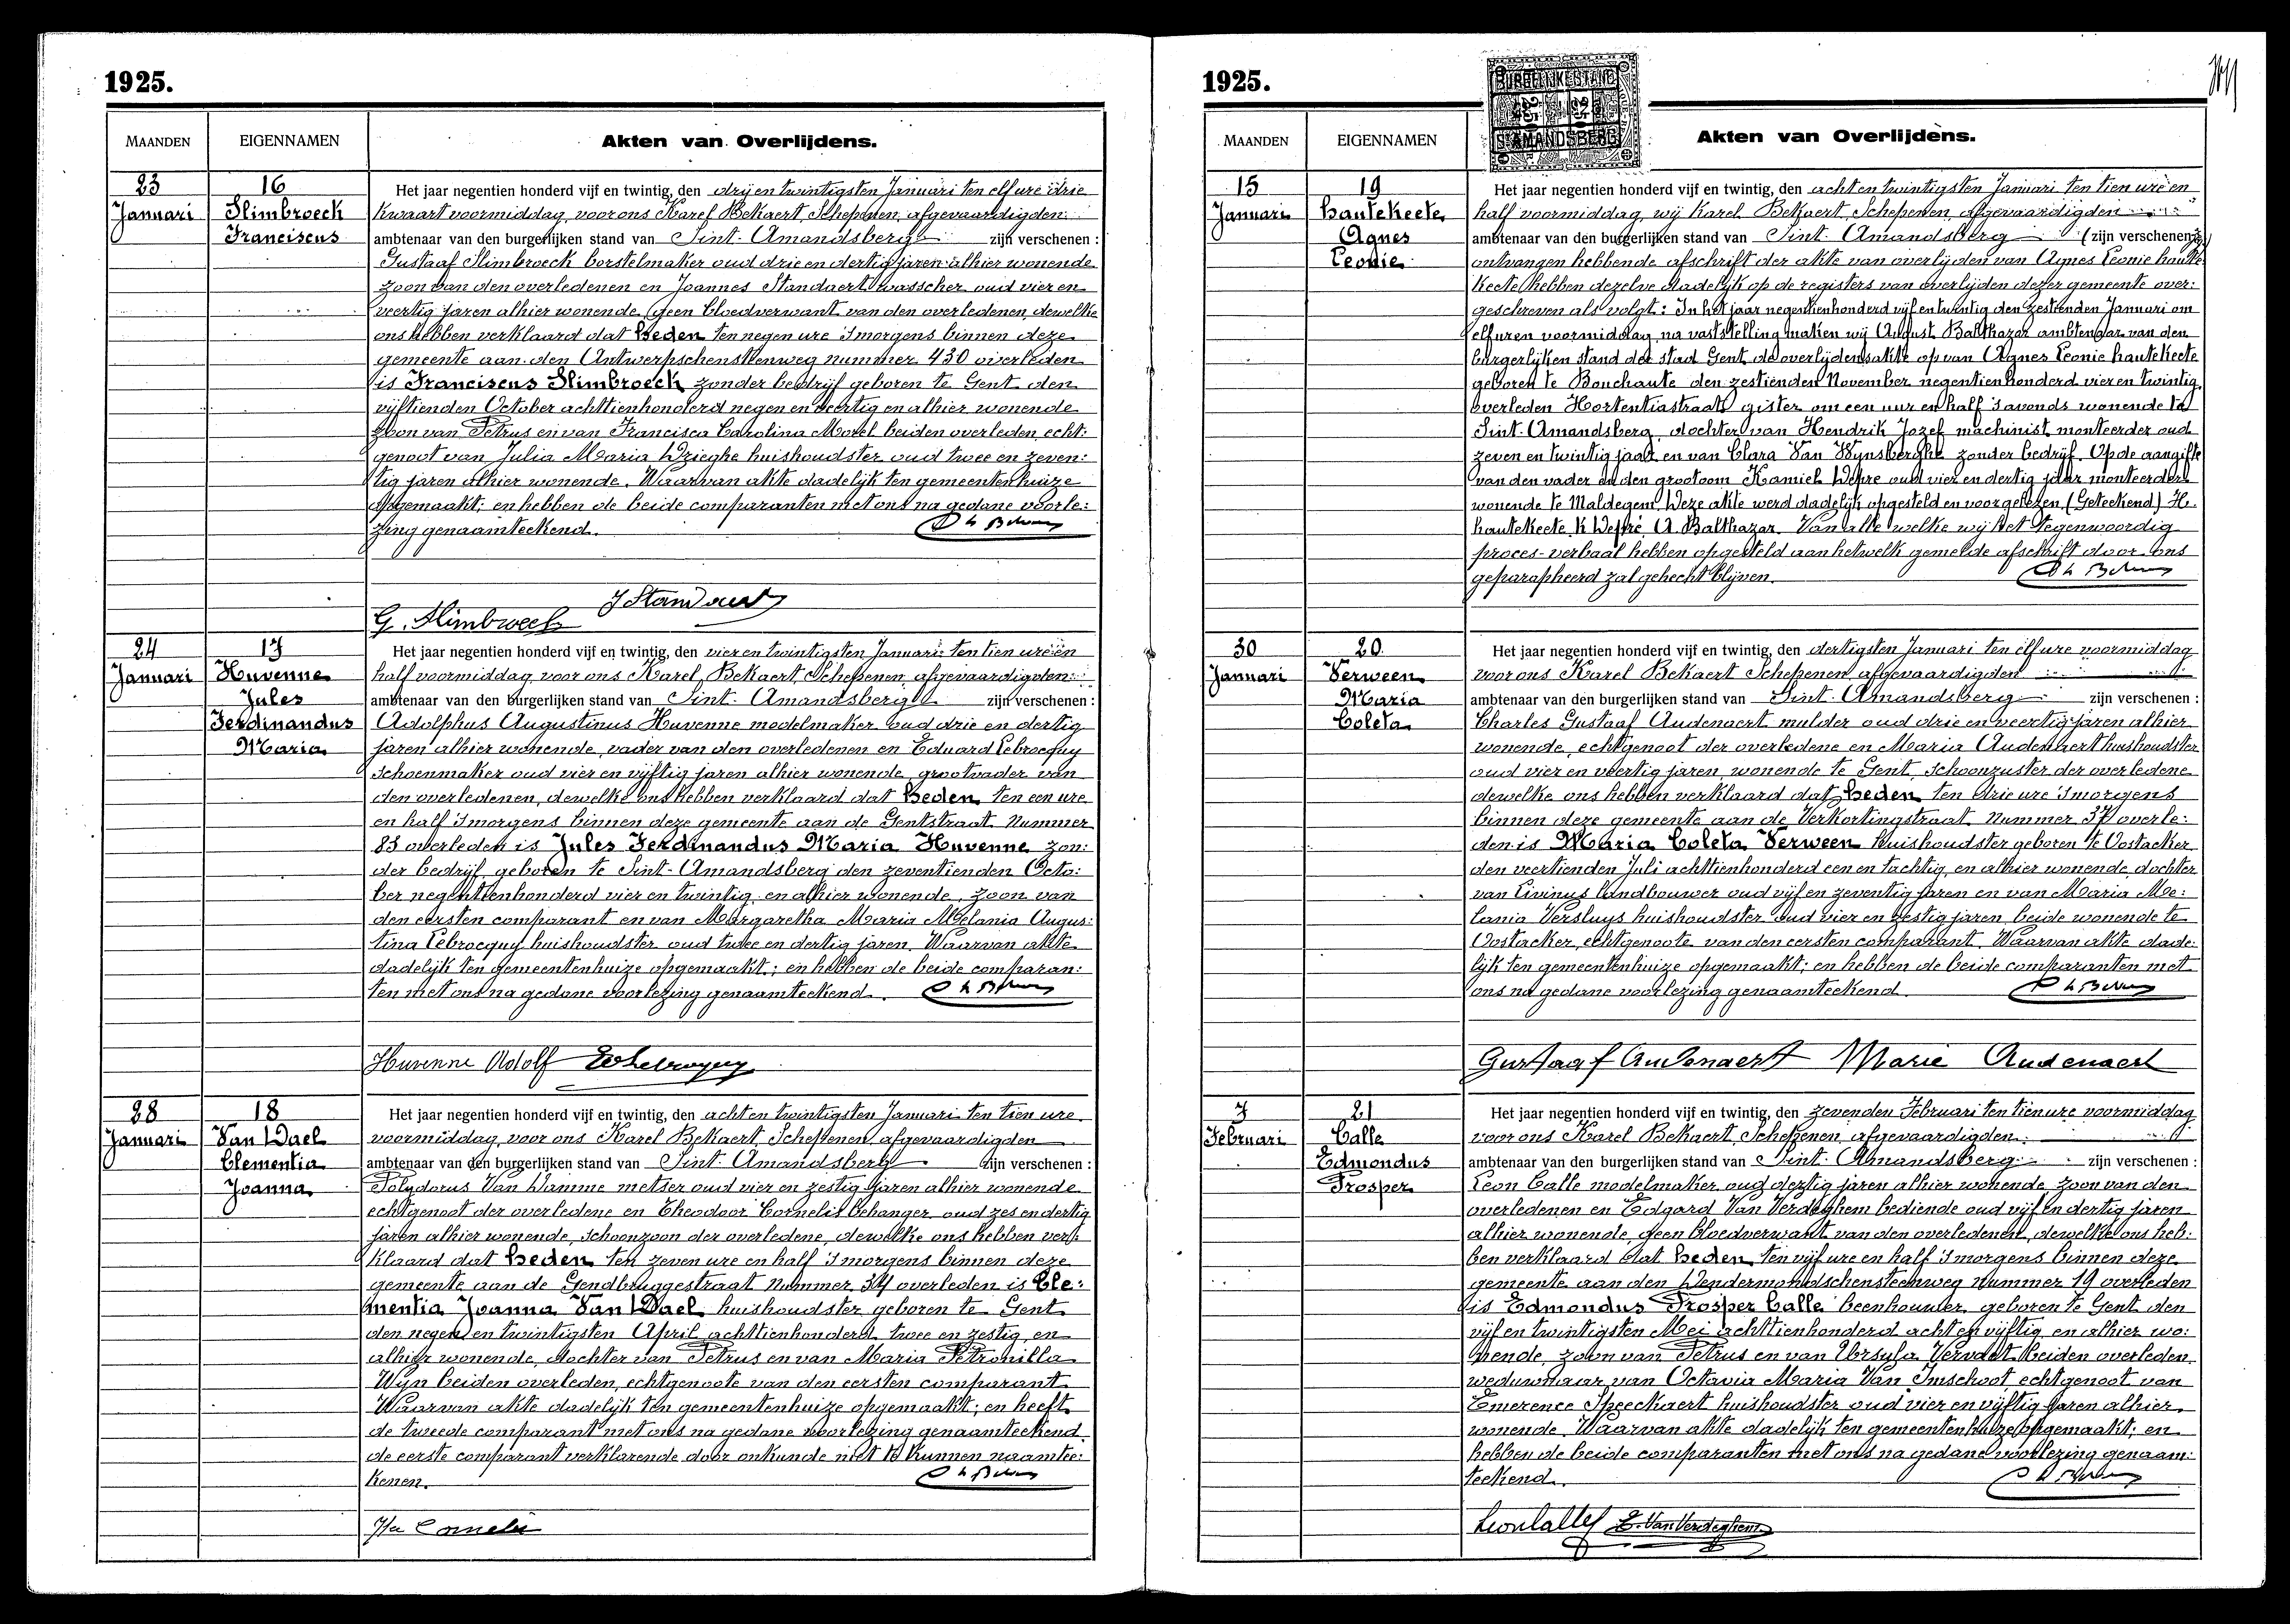 1925.
MAANDEN
EIGENNAMEN
Akten van Overlijdens.
23
Januari
16
Slimbroeck
Franciscus
Het jaar negentien honderd vijf en twintig, den drij en twintigsten Januari ten elf ure drie
kwaart voormiddag, voor ons Karel Bekaert Schepenen, afgevaardigden
ambtenaar van den burgerlijken stand van Sint-Amandsberg zijn verschenen :
Gustaaf Slimbroeck borstelmaker oud drie en dertig jaren alhier wonende
zoon van den overledenen en Joannes Standaert wasscher oud vier en
veertig jaren alhier wonende, geen bloedverwant van den overledenen, dewelke
ons hebben verklaard dat heden ten negen ure 's morgens binnen deze
gemeente aan den Antwerpschensteenweg nummer 430 overleden
is Franciscus Slimbroeck zonder bedrijf geboren te Gent den
vijftienden October achttienhonderd negen en veertig en alhier wonende
zoon van Petrus en van Francisca Carolina Morel beiden overleden, echt:
genoot van Julia Maria Dzieghe huishoudster oud twee en zeven:
tig jaren alhier wonende. Waarvan akte dadelijk ten gemeentenhuize
opgemaakt; en hebben de beide comparanten met ons na gedane voorle:
zing genaamteekend.
J Standaert
G. Slimbroeck
24
Januari
17
Huvenne
Jules
Ferdinandus
Maria
Het jaar negentien honderd vijf en twintig, den vier en twintigsten Januari ten tien ure en
half voormiddag, voor ons Karel Bekaert, Schepenen, afgevaardigden
ambtenaar van den burgerlijken stand van Sint-Amandsberg zijn verschenen :
Adolphus Augustinus Huvenne modelmaker oud drie en dertig
jaren alhier wonende, vader van den overledenen en Eduard Lebrocquy
schoenmaker oud vier en vijftig jaren alhier wonende, grootvader van
den overledenen, dewelke ons hebben verklaard dat heden ten een ure
en half 's morgens binnen deze gemeente aan de Gentstraat Nummer
83 overleden is Jules Ferdinandus Maria Huvenne zon:
der bedrijf, geboren te Sint-Amandsberg den zeventienden Octo:
ber negentienhonderd vier en twintig, en alhier wonende, zoon van
den eersten comparant en van Margaretha Maria Melania Augus:
tina Lebrocquy huishoudster oud twee en dertig jaren. Waarvan akte
dadelijk ten gemeentenhuize opgemaakt; en hebben de beide comparan:
ten met ons na gedane voorlezing genaamteekend.
Huvenne Adolf
28
Januari
18
Van Dael
Clementia
Joanna
Het jaar negentien honderd vijf en twintig, den acht en twintigsten Januari ten tien ure
voormiddag, voor ons Karel Bekaert, Schepenen, afgevaardigden
ambtenaar van den burgerlijken stand van Sint-Amandsberg zijn verschenen :
Polydorus Van Damme metser oud vier en zestig jaren alhier wonende
echtgenoot der overledene en Theodoor Cornelis behanger oud zes en dertig
jaren alhier wonende, schoonzoon der overledene, dewelke ons hebben ver:
klaard dat heden ten zeven ure en half 's morgens binnen deze
gemeente aan de Gendbruggestraat Nummer 34 overleden is Cle:
mentia Joanna Van Dael huishoudster geboren te Gent
den negen en twintigsten April achttienhonderd twee en zestig, en
alhier wonende, dochter van Petrus en van Maria Petronilla
Wijn beiden overleden, echtgenoote van den eersten comparant
Waarvan akte dadelijk ten gemeentenhuize opgemaakt; en heeft
de tweede comparant met ons na gedane voorlezing genaamteekend,
de eerste comparant verklarende door onkunde niet te kunnen naamtee:
kenen.
Cornelis
1925.
MAANDEN
EIGENNAMEN
BURGERLIJKE STAND
ST AMANDSBERG
Akten van Overlijdens.
15
Januari
19
hautekeete
Agnes
Leonie
Het jaar negentien honderd vijf en twintig, den acht en twintigsten Januari ten tien ure en
half voormiddag, wij Karel Bekaert Schepenen, afgevaardigden
ambtenaar van den burgerlijken stand van Sint-Amandsberg (zijn verschenen)
ontvangen hebbende afschrift der akte van overlijden van Agnes Leonie haute
keete, hebben dezelve dadelijk op de registers van overlijden dezer gemeente over:
geschreven als volgt: In het jaar negentienhonderd vijf en twintig den zestienden Januari om
elf uren voormiddag, na vaststelling maken wij August Balthazar ambtenaar van den
burgerlijken stand der stad Gent de overlijdensakte op van Agnes Leonie hautekeete
geboren te Bouchaute den zestienden November negentienhonderd vier en twintig,
overleden Hortentiastraat gister om een uur en half 's avonds wonende te
Sint-Amandsberg, dochter van Hendrik Jozef machinist monteerder oud
zeven en twintig jaar en van Clara Van Wynsberghe zonder bedrijf. Op de aangifte
van den vader en den grootoom Kamiel Depre oud vier en dertig jaar monteerder
wonende te Maldegem. Deze akte werd dadelijk opgesteld en voorgelezen. (Geteekend) H.
hautekeete. K Depré. A. Balthazar. Van alle welke wij het tegenwoordig
proces-verbaal hebben opgesteld aan hetwelk gemelde afschrift door ons
geparapheerd zal gehecht blijven.
30
Januari
20
Verween
Maria
Coleta
Het jaar negentien honderd vijf en twintig, den dertigsten Januari ten elf ure voormiddag
voor ons Karel Bekaert Schepenen, afgevaardigden
ambtenaar van den burgerlijken stand van Sint-Amandsberg zijn verschenen :
Charles Gustaaf Audenaert mulder oud drie en veertig jaren alhier
wonende, echtgenoot der overledene en Maria Audenaert huishoudster
oud vier en veertig jaren, wonende te Gent, schoonzuster der overledene
dewelke ons hebben verklaard dat heden ten drie ure 's morgens
binnen deze gemeente aan de Verkortingstraat Nummer 37 overle:
den is Maria Coleta Verween huishoudster geboren te Oostacker
den veertienden Juli achttienhonderd een en tachtig, en alhier wonende, dochter
van Livinus landbouwer oud vijf en zeventig jaren en van Maria Me:
lania Versluys huishoudster oud vier en zestig jaren, beide wonende te
Oostacker, echtgenoote van den eersten comparant. Waarvan akte dade:
lijk ten gemeentenhuize opgemaakt; en hebben de beide comparanten met
ons na gedane voorlezing genaamteekend.
Gustaaf Audenaert Marie Audenaert
7
Februari
21
Calle
Edmondus
Prosper
Het jaar negentien honderd vijf en twintig, den zevenden Februari ten tien ure voormiddag
voor ons Karel Bekaert, Schepenen, afgevaardigden
ambtenaar van den burgerlijken stand van Sint-Amandsberg zijn verschenen :
Leon Calle modelmaker oud dertig jaren alhier wonende zoon van den
overledenen en Edgard Van Verdeghem bediende oud vijf en dertig jaren
alhier wonende, geen bloedverwant van den overledenen, dewelke ons heb:
ben verklaard dat heden ten vijf ure en half 's morgens binnen deze
gemeente aan den Dendermondschensteenweg nummer 19 overleden
is Edmondus Prosper Calle beenhouwer, geboren te Gent den
vijf en twintigsten Mei achttienhonderd acht en vijftig, en alhier wo:
nende, zoon van Petrus en van Ursula Vervaet beiden overleden
weduwnaar van Octavia Maria Van Imschoot echtgenoot van
Emerence Speeckaert huishoudster oud vier en vijftig jaren alhier
wonende. Waarvan akte dadelijk ten gemeentenhuize opgemaakt; en
hebben de beide comparanten met ons na gedane voorlezing genaam:
teekend.
Leon Calle E. Van Verdeghem